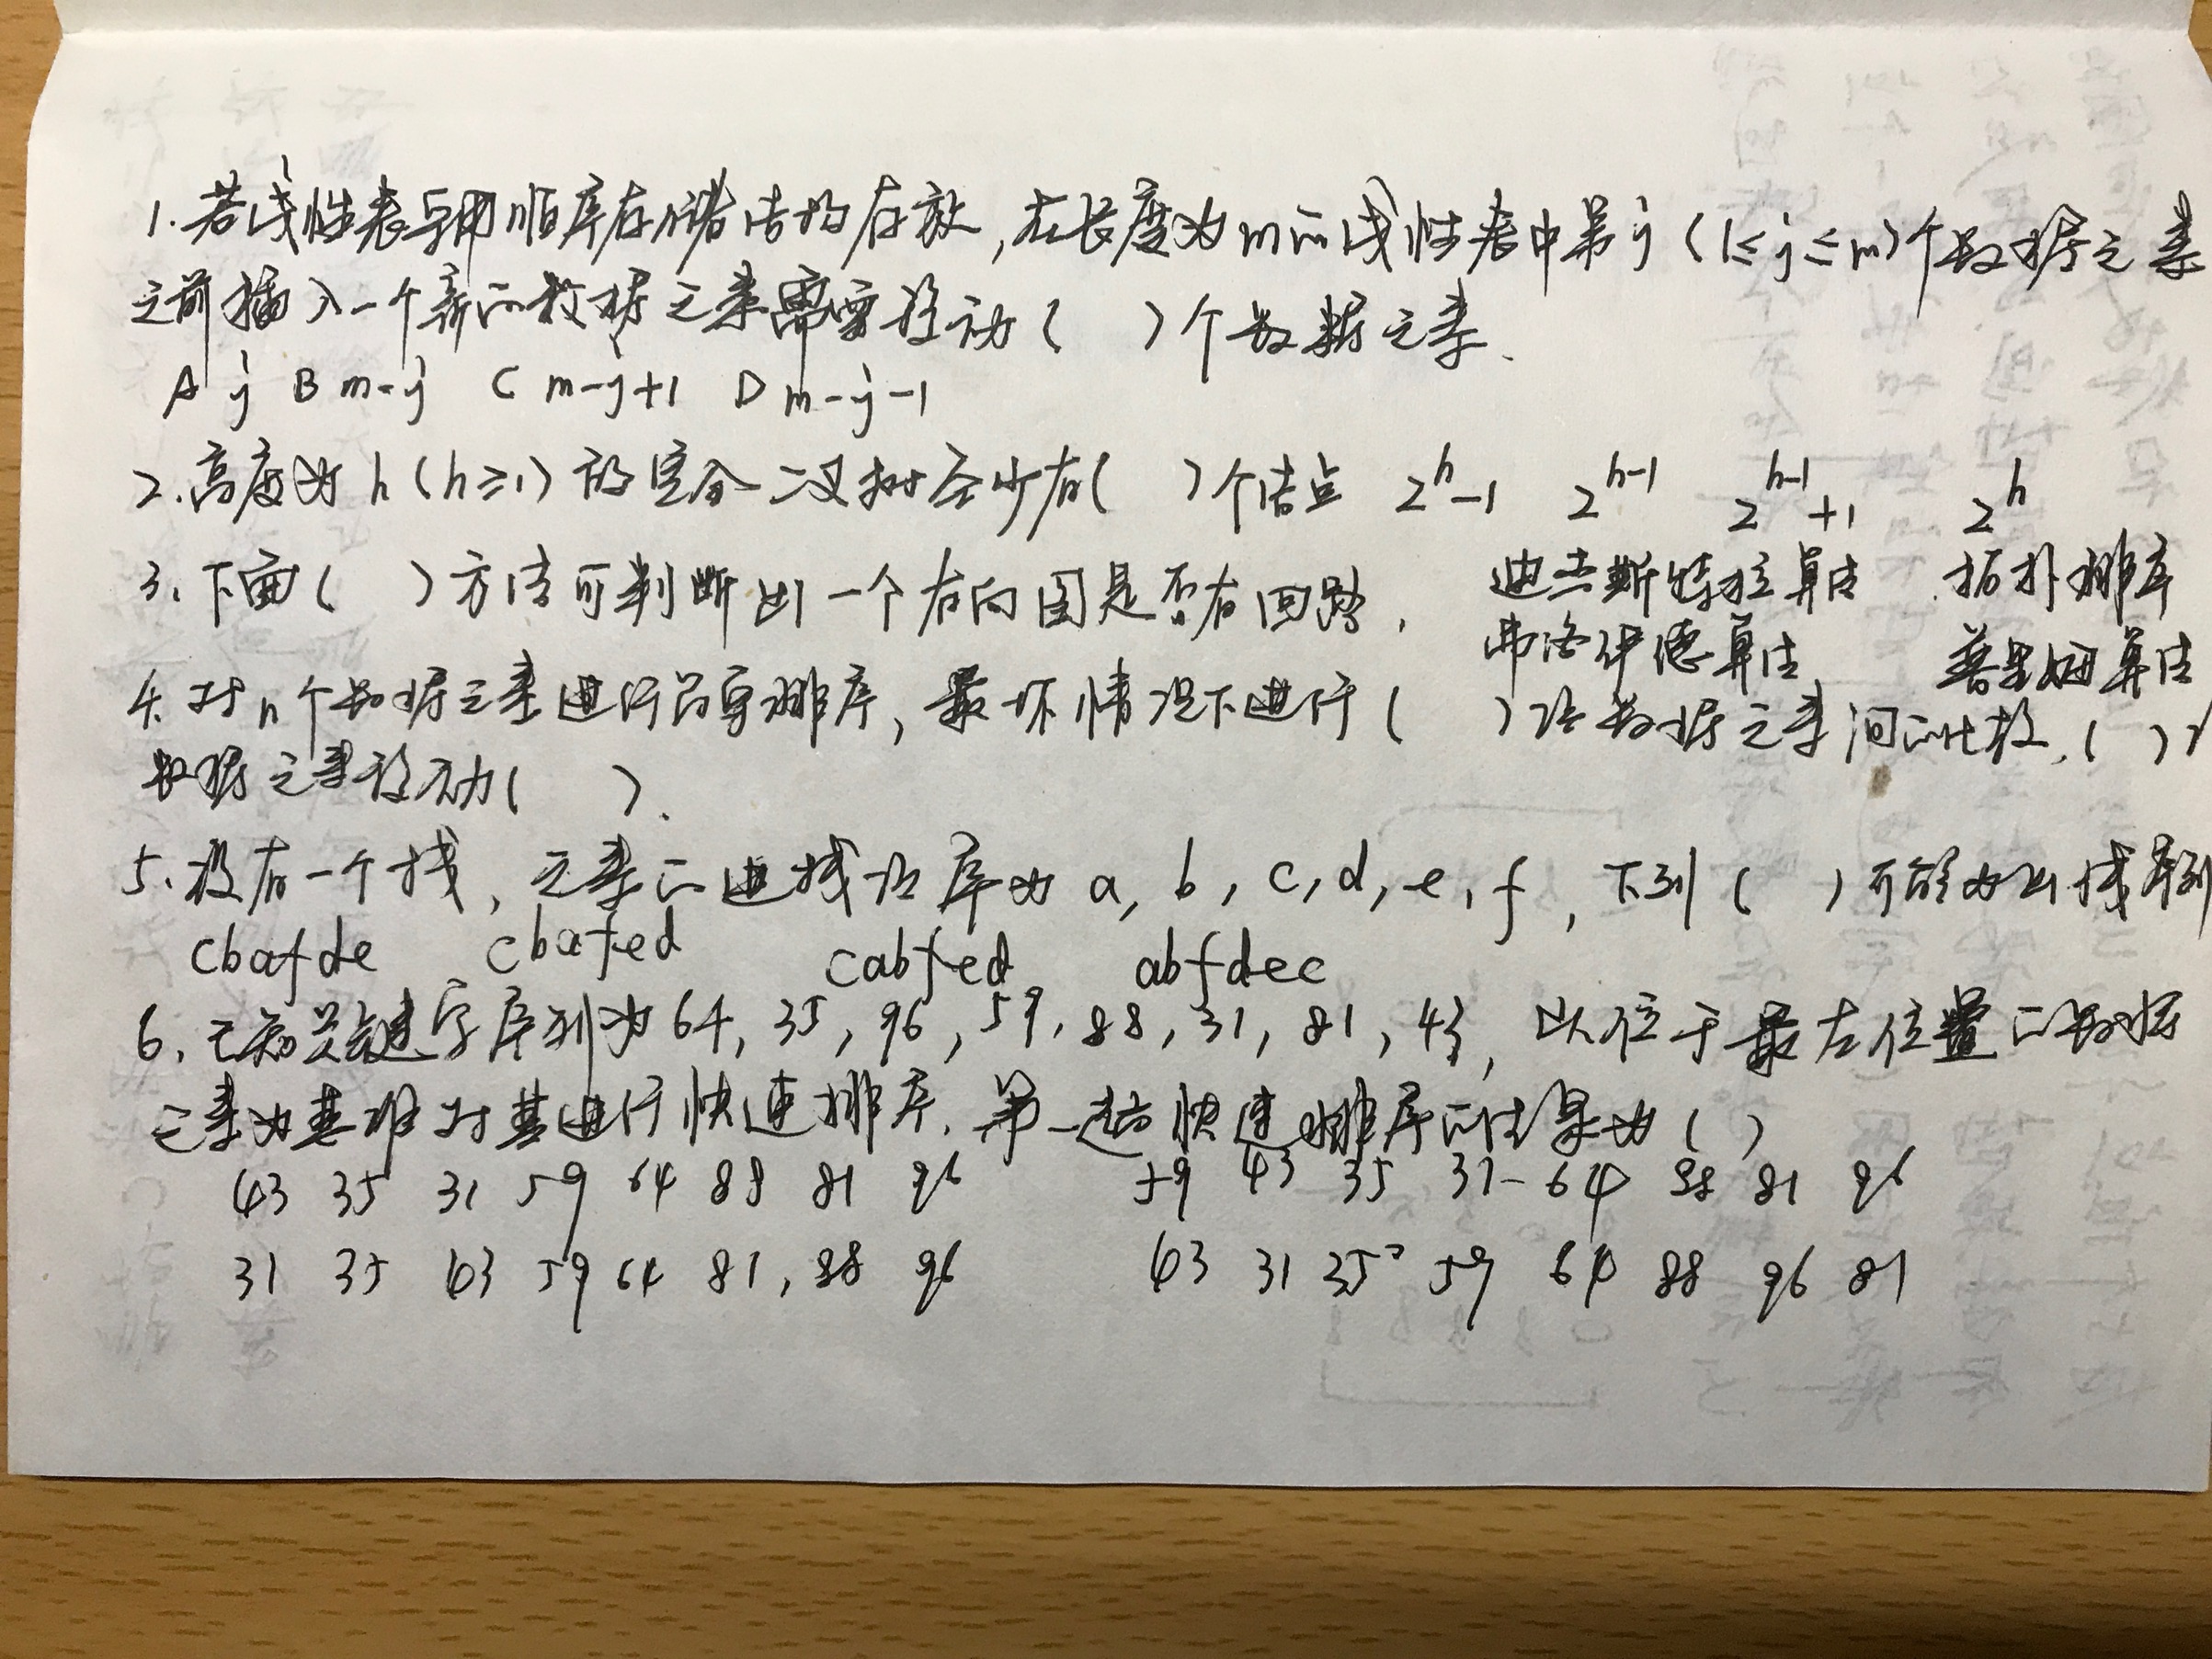 1.若线性表采用顺序存储结构存放,在长度为m的线性表中第j(1≤j≤m)个数据元素
之前插入一个新的数据元素需要移动( )个数据元素.
A j B m-j C m-j+1 D m-j-1
2.高度为h(h≥1)的完全二叉树至少有( )个结点 2^h-1 2^{h-1} 2^{h-1}+1 2^h
3.下面( )方法可判断出一个有向图是否有回路. 迪杰斯特拉算法 拓扑排序
弗洛伊德算法 普里姆算法
4.对n个数据元素进行冒泡排序,最坏情况下进行( )次数据元素间的比较,( )次
数据元素移动( ).
5.设有一个栈,元素的进栈次序为a,b,c,d,e,f,下列( )可能为出栈序列
cbafde cbafed cabfed abfdec
6.已知关键字序列为64,35,96,59,88,31,81,43,以位于最左位置的数据
元素为基准对其进行快速排序.第一趟快速排序的结果为( )
43 35 31 59 64 88 81 96 59 43 35 31-64 88 81 96
31 35 43 59 64 81,88 96 43 31 35 59 64 88 96 81